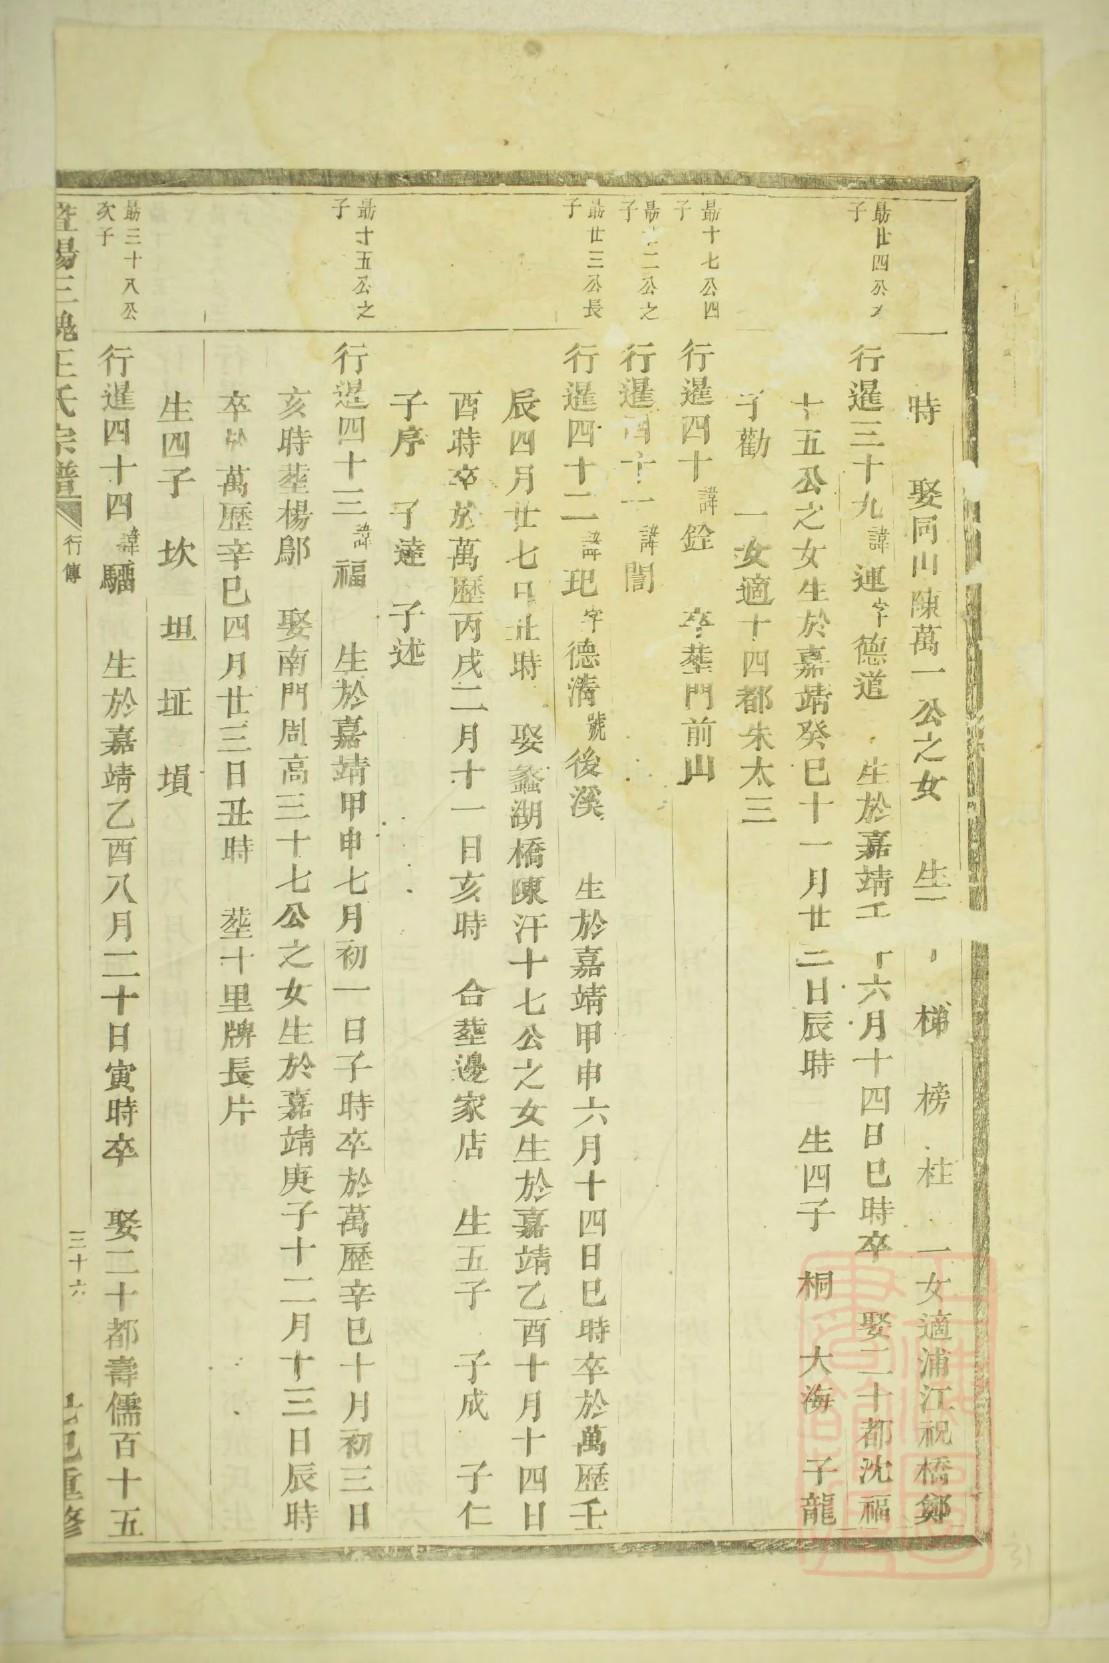 時 娶同山陳萬一公之女 生 梯 榜 柱 一女適浦江祝橋鄭
勗廿四公
子
行暹三十九諱連字德道 生於嘉靖 六月十四日巳時卒 娶二十都沈福
十五公之女生於嘉靖癸巳十一月廿二日辰時 生四子 桐 大海 子龍
子勸 一女適十四都朱太三
勗十七公四
子
行暹四十諱銓 卒塟門前山
二公之
子
行暹四十一諱誾
勗廿三公長
子
行暹四十二諱玘字德濤號後溪 生於嘉靖甲申六月十四日巳時卒於萬歷壬
辰四月廿七日 時 娶蠡湖橋陳汗十七公之女生於嘉靖乙酉十月十四日
酉時卒於萬歷丙戌二月十一日亥時 合塟邊家店 生五子 子成 子仁
子序 子達 子述
勗十五公之
子
行暹四十三諱福 生於嘉靖甲申七月初一日子時卒於萬歷辛巳十月初三日
亥時塟楊鄔 娶南門周高三十七公之女生於嘉靖庚子十二月十三日辰時
卒於萬歷辛巳四月廿三日丑時 塟十里牌長片
生四子 坎 坦 坵 塤
勗三十八公
次子
行暹四十四諱騮 生於嘉靖乙酉八月二十日寅時卒 娶二十都壽儒百十五
暨陽 王氏宗譜 行傳 三十六 巳重修